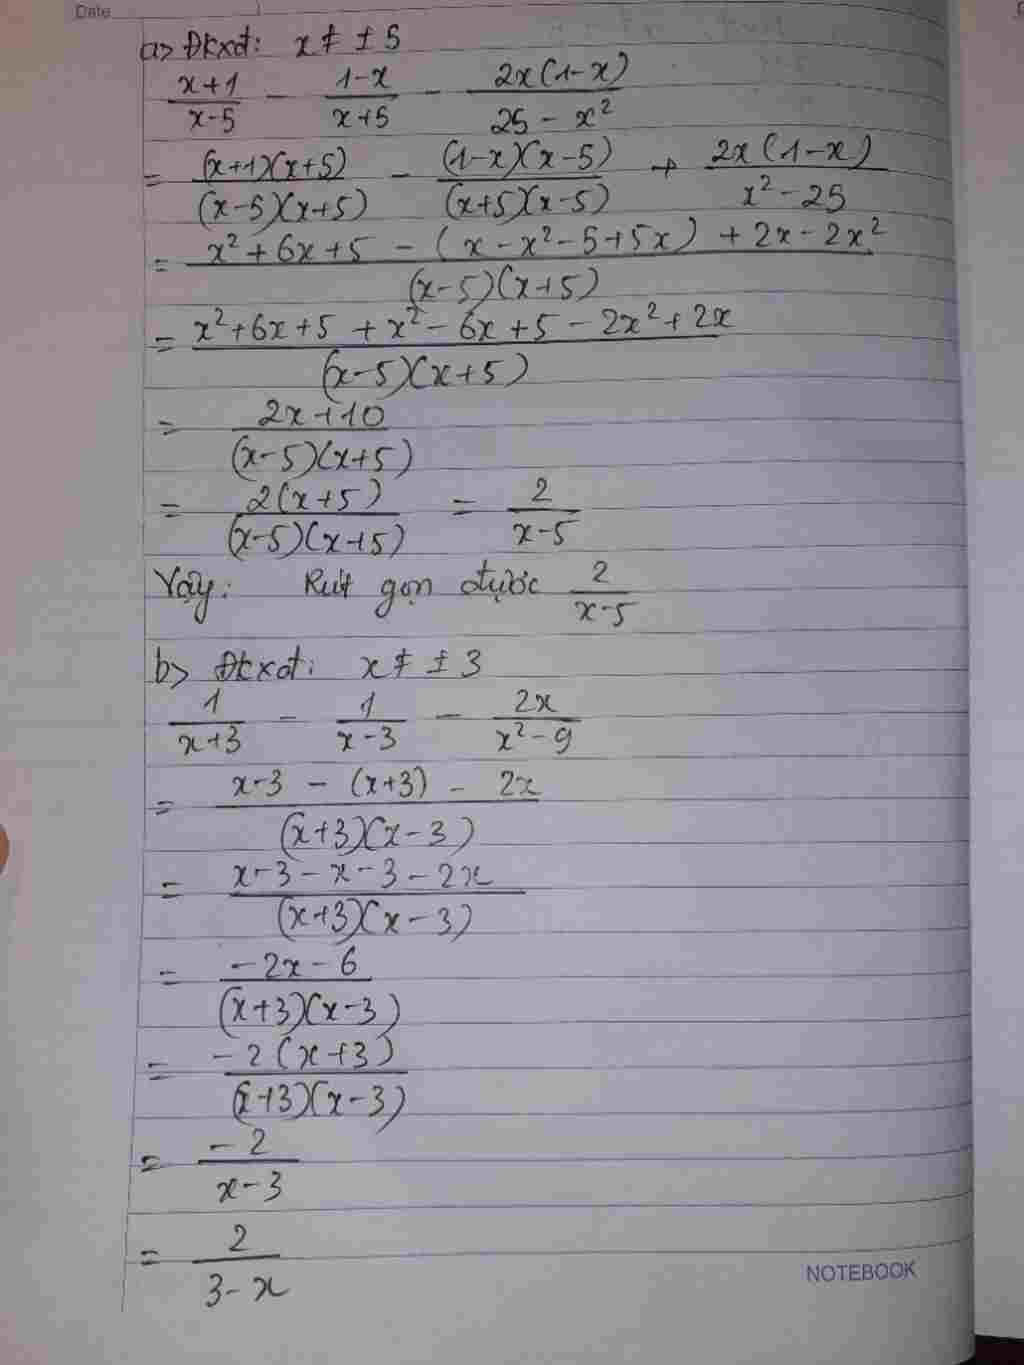 Date
a> Đkxđ: x ≠ ± 5
(x+1)/(x-5) - (1-x)/(x+5) - (2x(1-x))/(25-x²)
= ((x+1)(x+5))/((x-5)(x+5)) - ((1-x)(x-5))/((x+5)(x-5)) + (2x(1-x))/(x²-25)
= (x²+6x+5 - (x-x²-5+5x) + 2x-2x²)/((x-5)(x+5))
= (x²+6x+5 + x²-6x+5-2x²+2x)/((x-5)(x+5))
= (2x+10)/((x-5)(x+5))
= (2(x+5))/((x-5)(x+5)) = 2/(x-5)
Vậy: Rút gọn được 2/(x-5)
b> Đkxđ: x ≠ ± 3
1/(x+3) - 1/(x-3) - 2x/(x²-9)
= (x-3 - (x+3) - 2x)/((x+3)(x-3))
= (x-3-x-3-2x)/((x+3)(x-3))
= (-2x-6)/((x+3)(x-3))
= (-2(x+3))/((x+3)(x-3))
= -2/(x-3)
= 2/(3-x)
NOTEBOOK